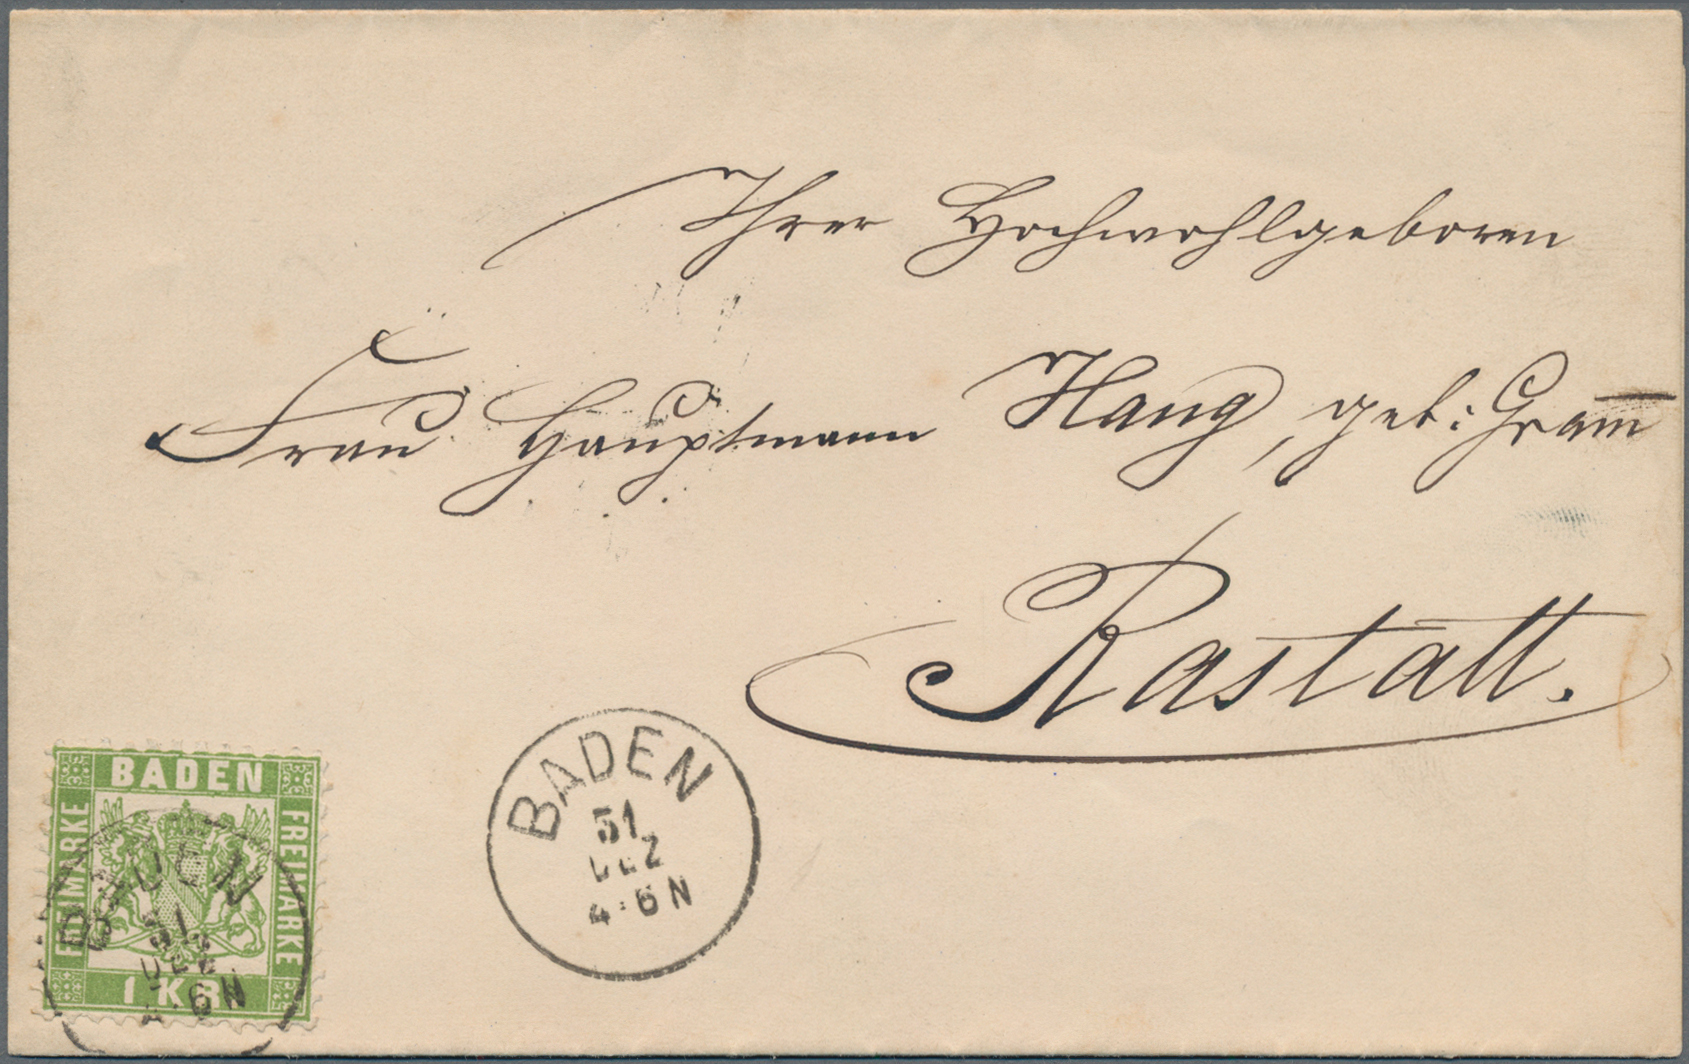 Ihrer Hochwohlgeboren
Frau Hauptmann Haug, geb: Gram̅
Rastatt.
BADEN
31
DEZ
4·6N
BADEN
FREIMARKE
FREIMARKE
1 KR
BADEN
31
DEZ
4·6N